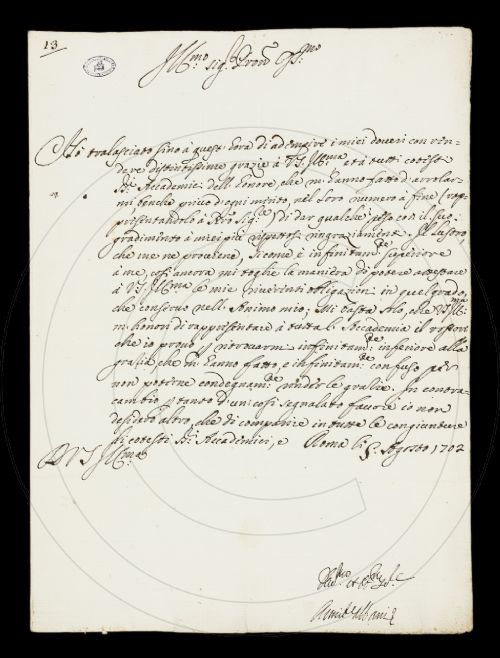 13
Ill:mo Sig.r Pron Oss:mo
Hò tralasciato fino à quest'hora di adempire i miei doveri con ren-
dere distintissime grazie à V.S. Ill:ma, et à tutti cotesti
SS:ri Accademici dell'honore, che m'hanno fatto d'arrolar-
mi benche privo d'ogni merito, nel loro numero à fine (rap-
presentandolo à
) di dar qualche peso con il suo
gradimento à miei più rispettosi ringraziamenti. Il lustro,
che me ne proviene, sicome è infinitam:te superiore
à me, così ancora mi toglie la maniera di potere attestare
à V.S. Ill:ma le mie riverenti obligazioni in quel grado,
che conservo nell'Animo mio; Mi basta solo, che V.S. Ill:ma
m'honori di rappresentare à tutta l'Accademia il rossore
che io provo p ritrovarmi infinitam:te inferiore alla
grazia, che m'hanno fatto, e infinitam:te confuso per
non poterne condegnam:te render le grazie. In contra-
cambio p tanto d'un così segnalato favore io non
desidero altro, che di compiacere in tutte le congiunture
li cotesti SS:ri Accademici, e Roma li 5. Agosto 1702
D V.S. Ill:ma